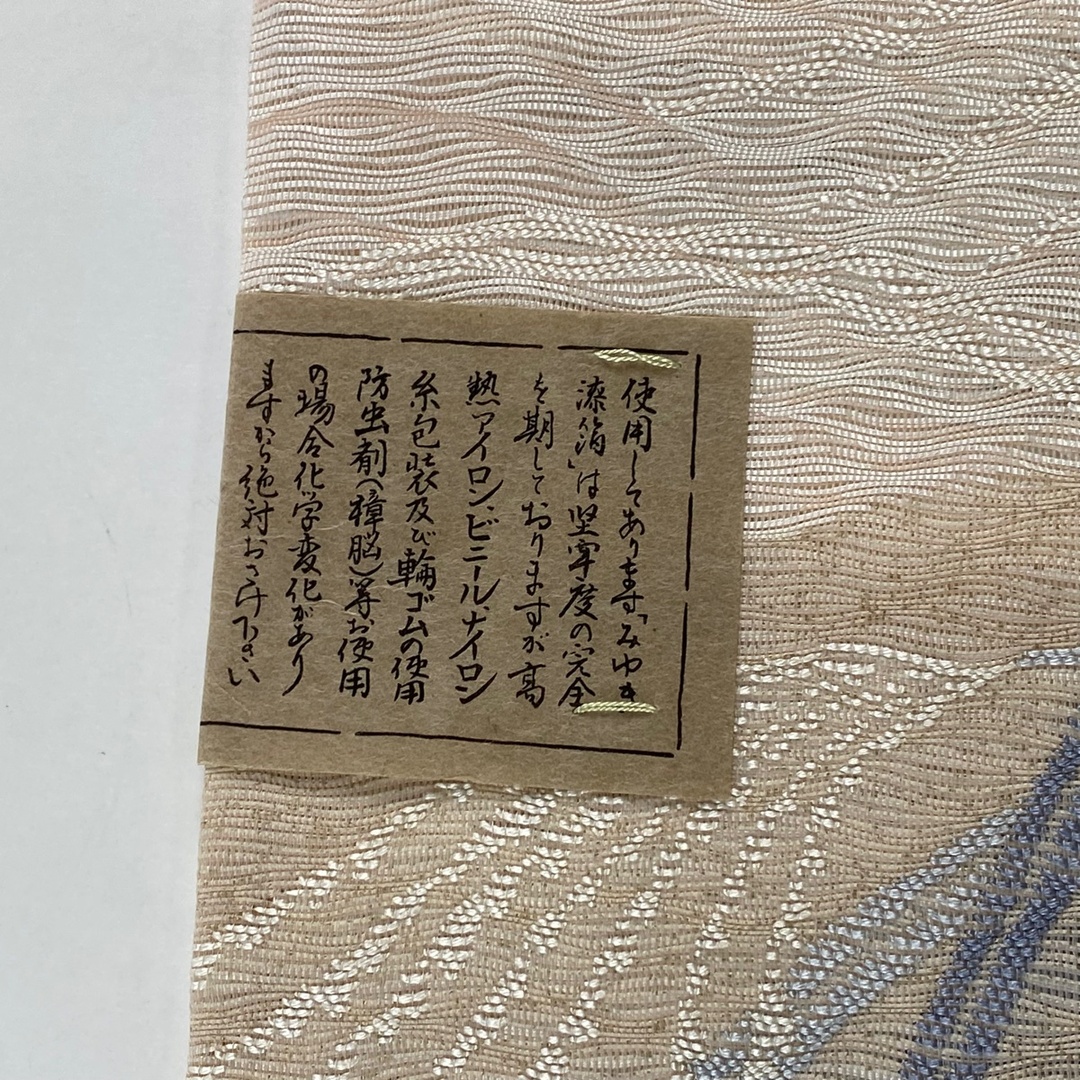 使用してあります「みゆき
漆箔」は堅牢度の完全
を期しておりますが高
熱アイロン、ビニール、ナイロン
糸包装及び輪ゴムの使用
防虫剤(樟脳)等お使用
の場合化学変化があり
ますから絶対おさけ下さい